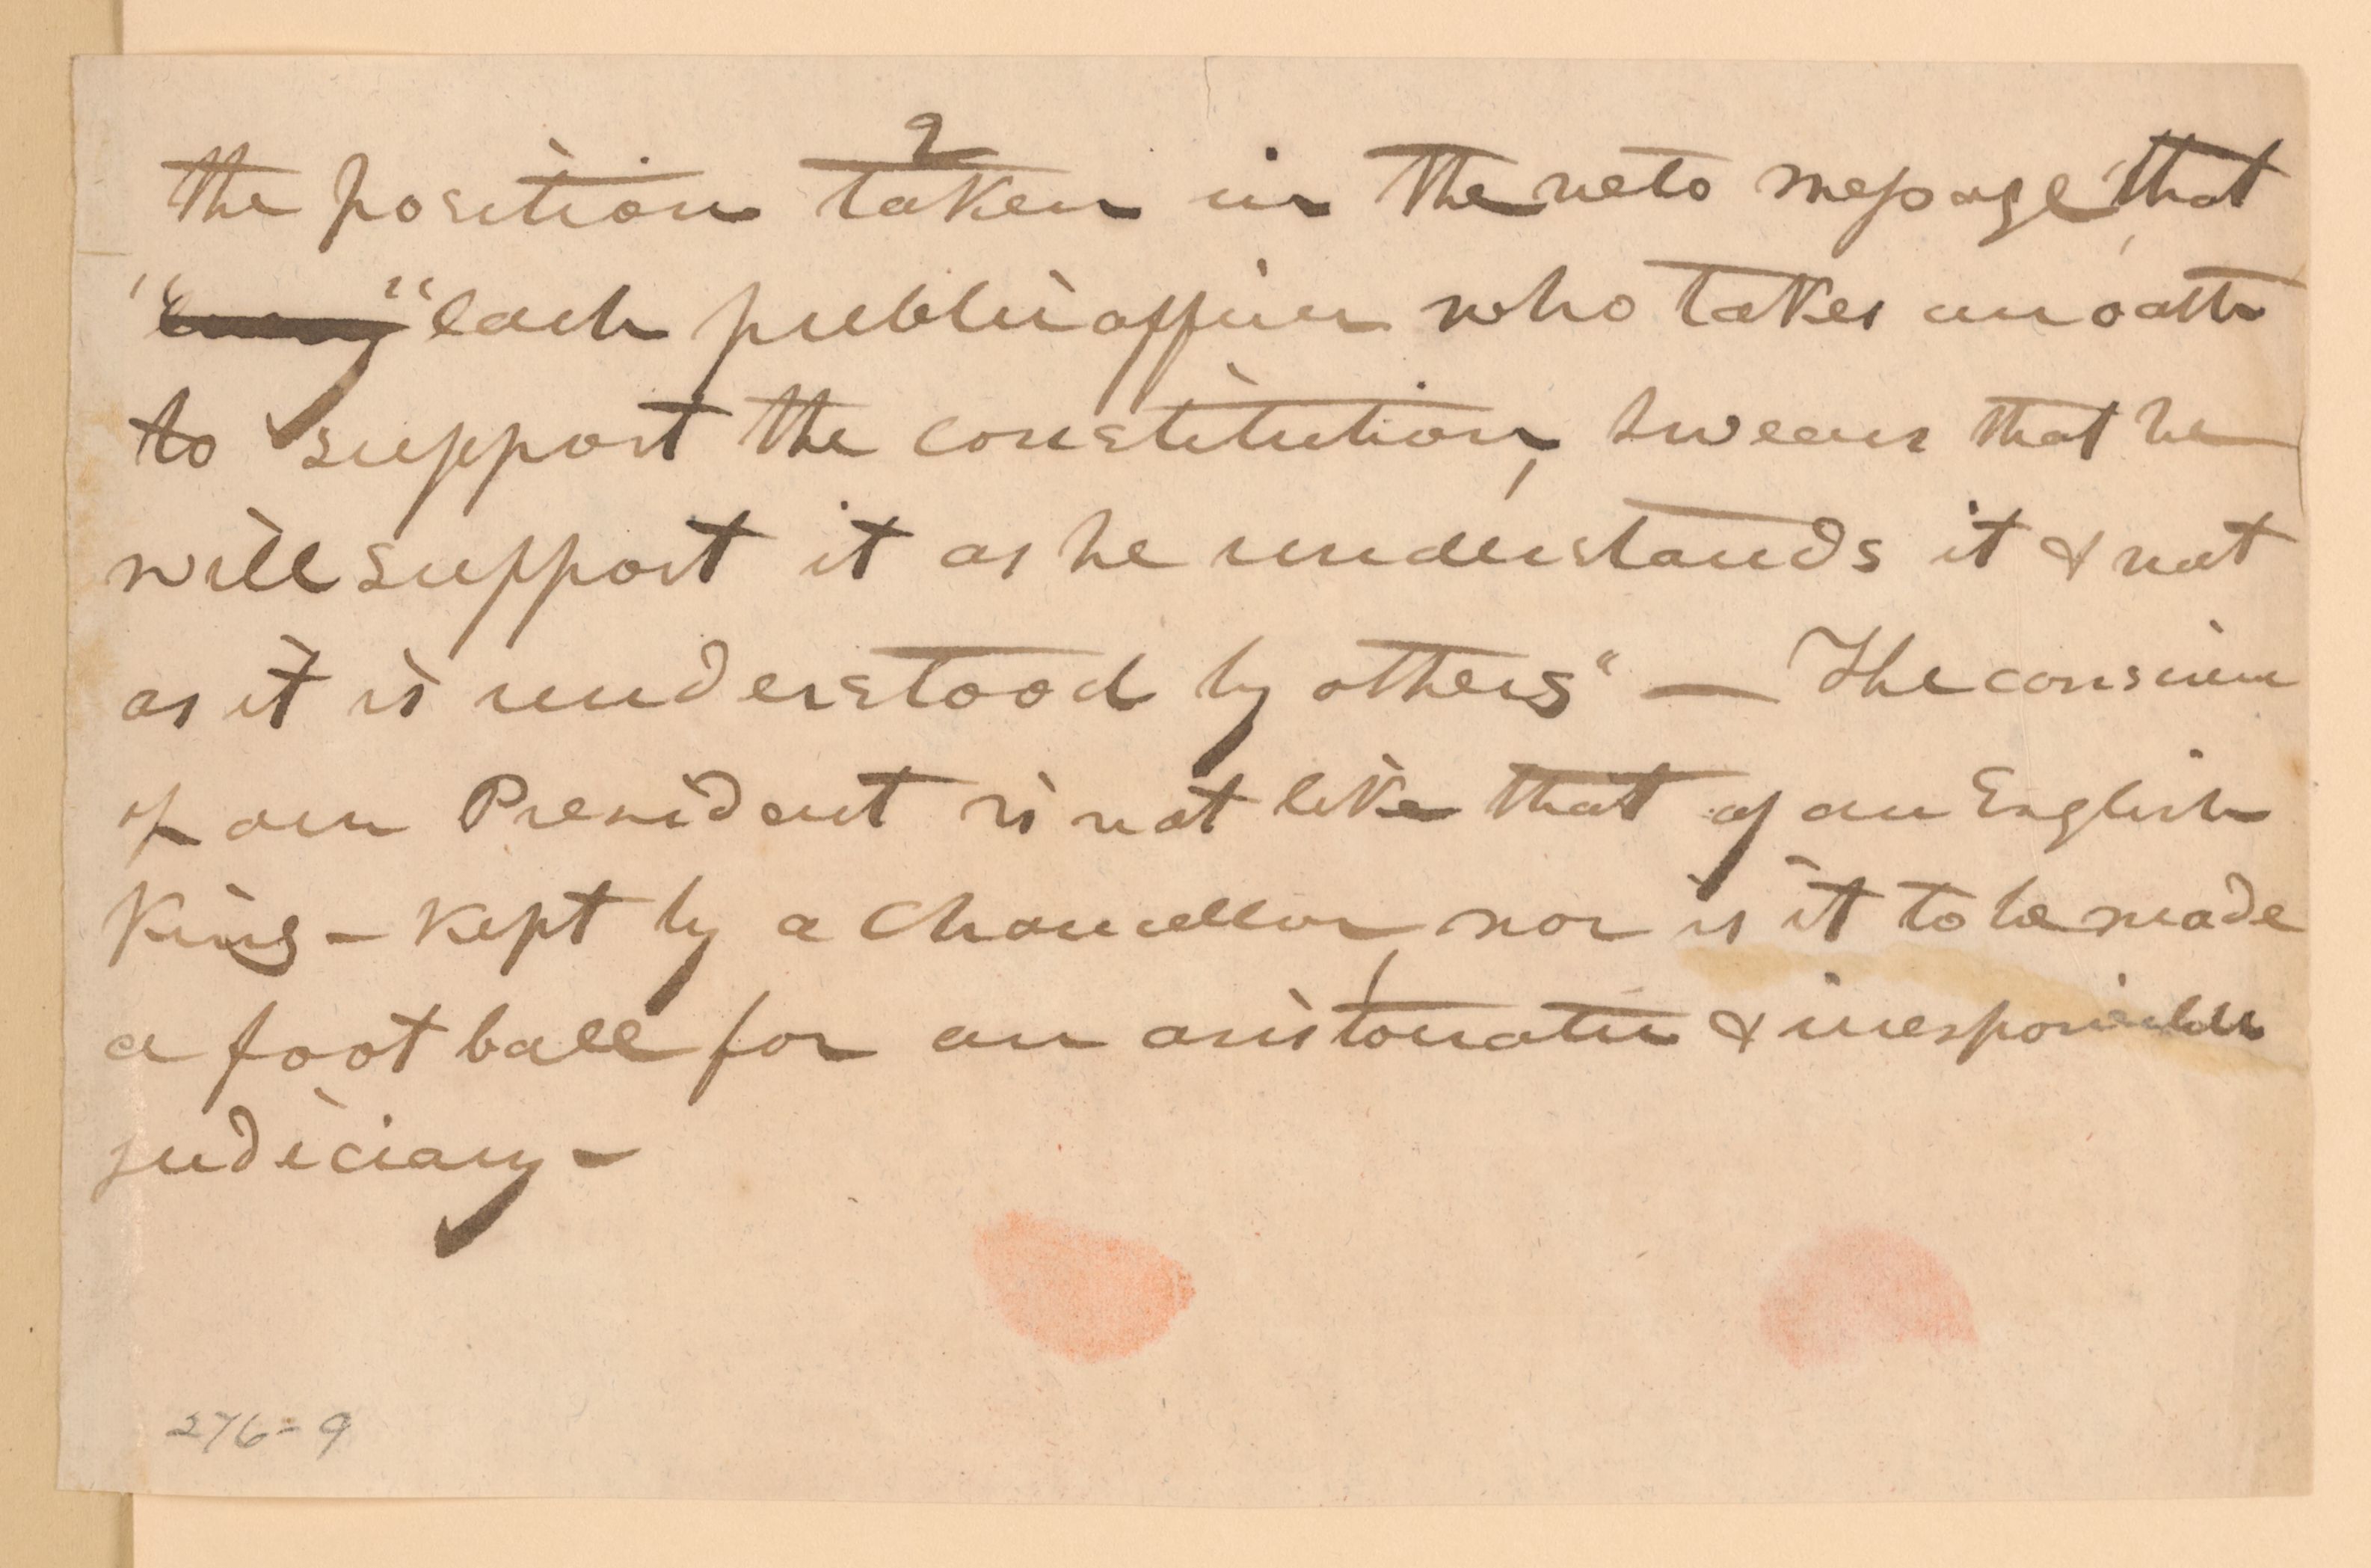 2
the position taken in the veto message, that
"every" "each public officer who takes an oath
to support the constitution, swears that he
will support it as he understands it & not
as it is understood by others" — The conscience
of our President is not like that of an English
King – kept by a Chancellor, nor is it to be made
a foot ball for an aristocratic & irresponsible
judiciary –
276=9